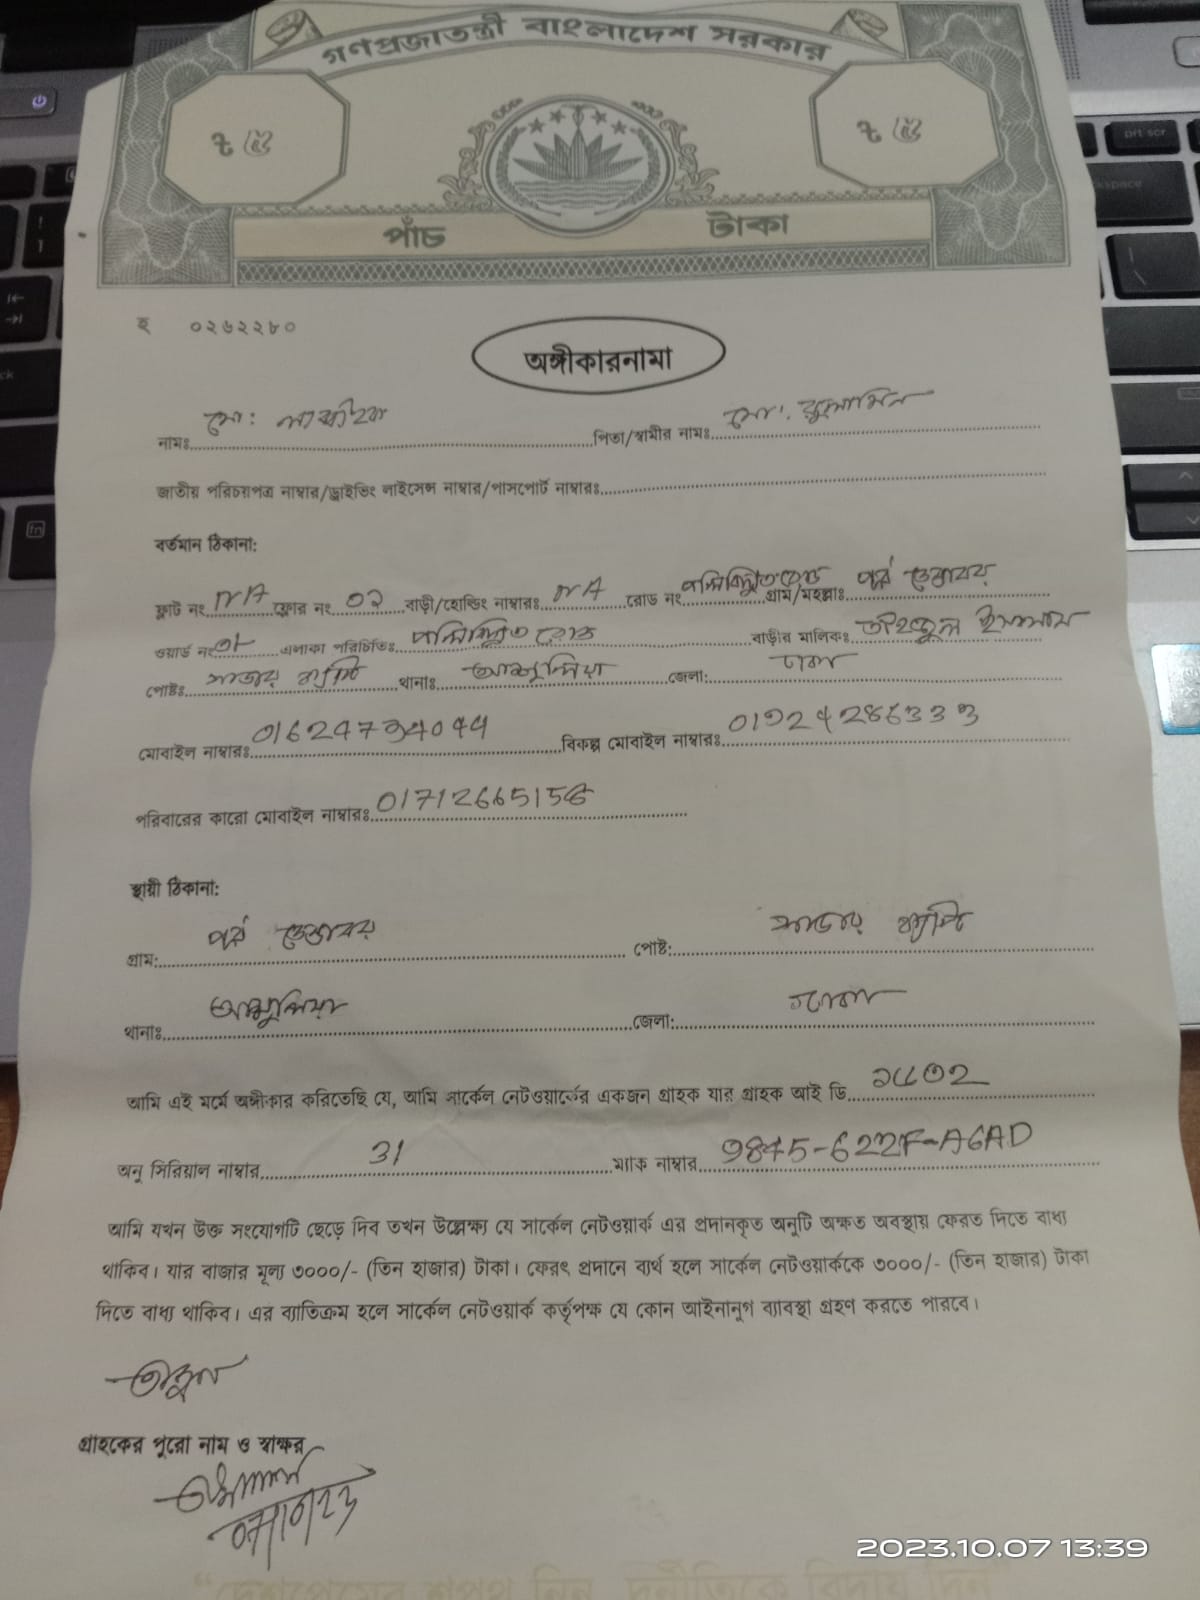 গণপ্রজাতন্ত্রী বাংলাদেশ সরকার
৳ ৫ ৳ ৫
পাঁচ টাকা
হ ০২৬২২৮০
অঙ্গীকারনামা
নামঃ মো: পিতা/স্বামীর নামঃ মো: রুহুল আমিন
জাতীয় পরিচয়পত্র নাম্বার/ড্রাইভিং লাইসেন্স নাম্বার/পাসপোর্ট নাম্বারঃ
বর্তমান ঠিকানা:
ফ্লাট নং NA ফ্লোর নং ০২ বাড়ী/হোল্ডিং নাম্বারঃ NA রোড নং পল্লিবিদ্যুত রোড গ্রাম/মহল্লাঃ পূর্ব ডেন্ডাবর
ওয়ার্ড নং এলাকা পরিচিতিঃ পল্লিবিদ্যুত রোড বাড়ীর মালিকঃ ইসলাম
পোষ্টঃ সাভার ক্যান্ট থানাঃ আশুলিয়া জেলা: ঢাকা
মোবাইল নাম্বারঃ বিকল্প মোবাইল নাম্বারঃ
পরিবারের কারো মোবাইল নাম্বারঃ
স্থায়ী ঠিকানা:
গ্রাম: পূর্ব ডেন্ডাবর পোষ্ট: সাভার ক্যান্ট
থানাঃ আশুলিয়া জেলা: ঢাকা
আমি এই মর্মে অঙ্গীকার করিতেছি যে, আমি সার্কেল নেটওয়ার্কের একজন গ্রাহক যার গ্রাহক আই ডি
অনু সিরিয়াল নাম্বার 31 ম্যাক নাম্বার
আমি যখন উক্ত সংযোগটি ছেড়ে দিব তখন উল্লেক্ষ্য যে সার্কেল নেটওয়ার্ক এর প্রদানকৃত অনুটি অক্ষত অবস্থায় ফেরত দিতে বাধ্য
থাকিব। যার বাজার মূল্য ৩০০০/- (তিন হাজার) টাকা। ফেরৎ প্রদানে ব্যর্থ হলে সার্কেল নেটওয়ার্ককে ৩০০০/- (তিন হাজার) টাকা
দিতে বাধ্য থাকিব। এর ব্যাতিক্রম হলে সার্কেল নেটওয়ার্ক কর্তৃপক্ষ যে কোন আইনানুগ ব্যাবস্থা গ্রহণ করতে পারবে।
গ্রাহকের পুরো নাম ও স্বাক্ষর
2023.10.07 13:39
“দেশপ্রেমের শপথ নিন, দুর্নীতিকে বিদায় দিন”